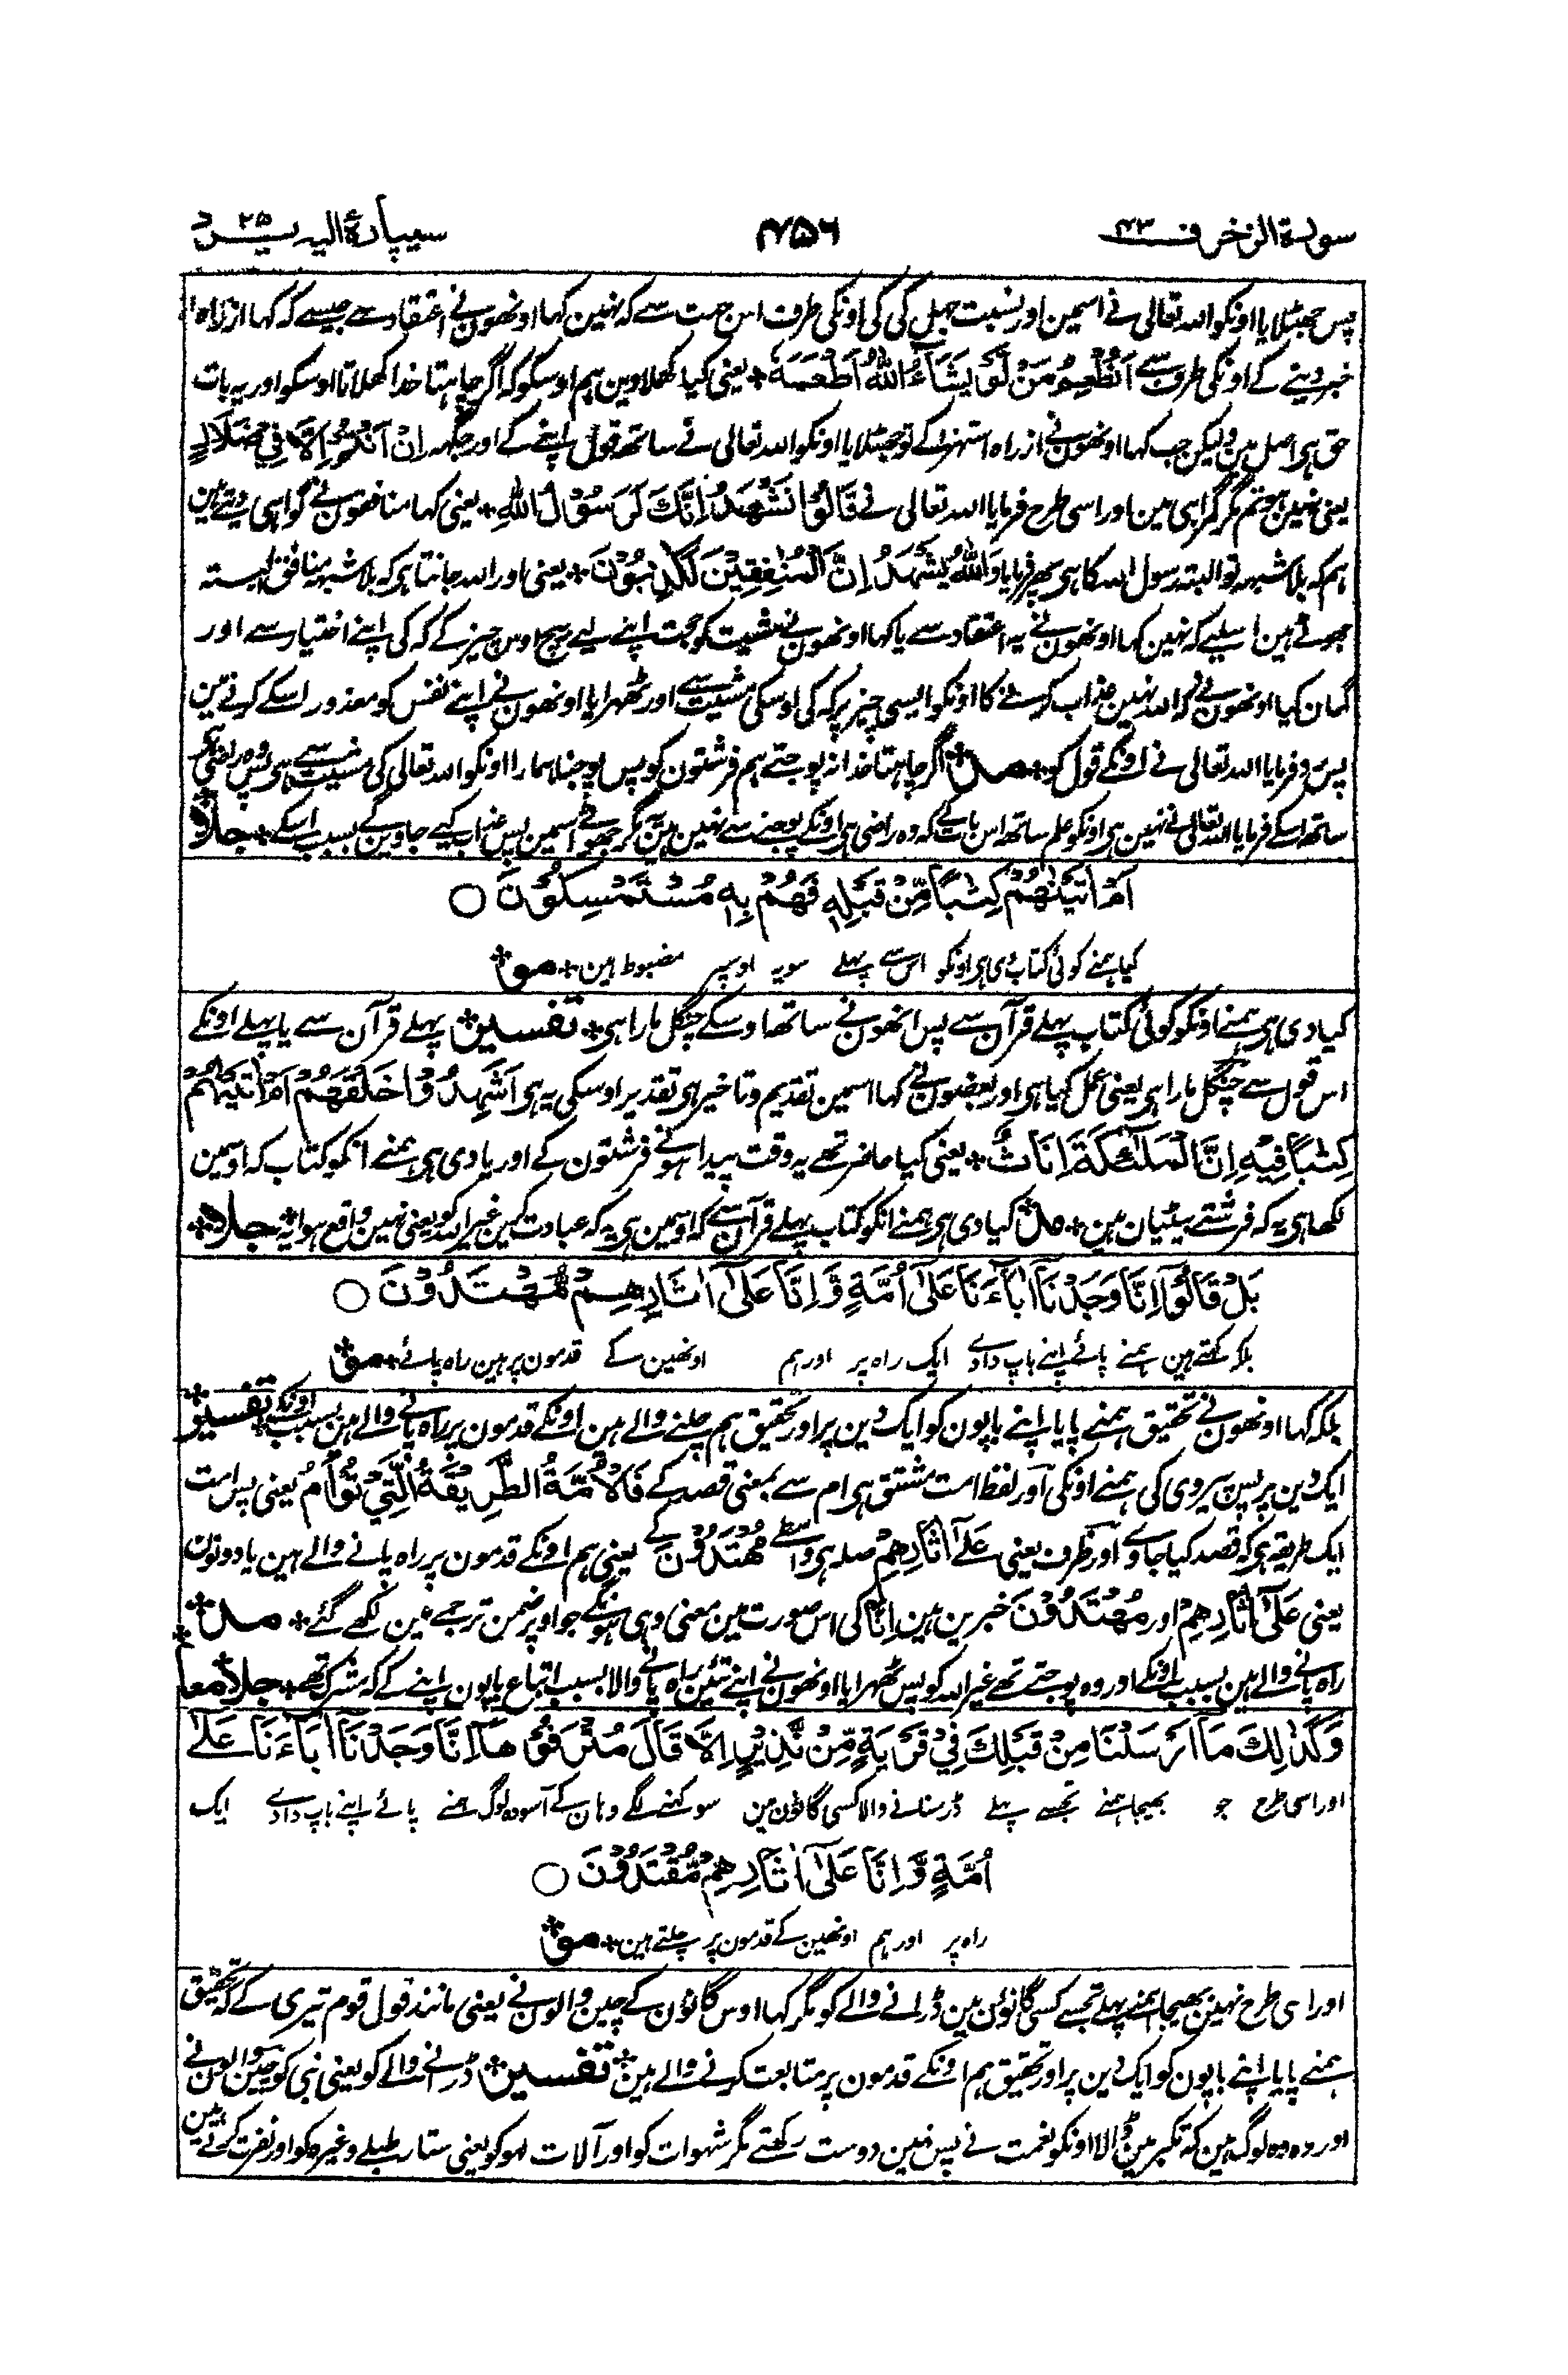 سورة الزخرف ۴۳ ۷۵۶ سیپارۂ الیہ یرد ۲۵
پس جھٹلایا اونکو اللہ تعالی نے اسمین اور نسبت جہل کی کی اونکی طرف اس جہت سے کہ نہین کہا اونھون نے اعتقاد سے جیسے کہ کہا از راہ
خبر دینے کے اونکی طرف سے اَنُطْعِمُ مَنْ لَّوْ یَشَآءُ اللّٰهُ اَطْعَمَهٗ ٭ یعنی کیا کھلاوین ہم اوسکو کہ اگر چاہتا خدا کھلاتا اوسکو اور یہ بات
حق ہی اصل مین و لیکن جب کہا اونھون نے از راہ استہزا کے تو جھٹلایا اونکو اللہ تعالی نے ساتھ قول اپنے کے اور جگہہ اِنْ اَنْتُمْ اِلَّا فِیْ ضَلَالٍ
یعنی نہین ہو تم مگر گمراہی مین اور اسی طرح فرمایا اللہ تعالی نے قَالُوْا نَشْهَدُ اِنَّكَ لَرَسُوْلُ اللّٰهِ ٭ یعنی کہا منافقون نے گواہی دیتے ہین
ہم کہ بلا شبہہ تو البتہ رسول اللہ کا ہی پھر فرمایا وَاللّٰهُ یَشْهَدُ اِنَّ الْمُنٰفِقِیْنَ لَكٰذِبُوْنَ ٭ یعنی اور اللہ جانتا ہی کہ بلا شبہہ منافق البستہ
جھوٹے ہین اسلیے کہ نہین کہا اونھون نے یہ اعتقاد سے یا کہا اونھون نے مشیت کو حجت اپنے لیے بیچ اوس چیز کے کہ کی اپنے اختیار سے اور
گمان کیا اونھون نے کہ اللہ نہین عذاب کرنے کا اونکو ایسی چیز پر کہ کی اوسکی مشیت سے اور ٹھہرایا اونھون نے اپنے نفس کو معذور اسکے کرنے مین
پس رد فرمایا اللہ تعالی نے اونکے قول کو ٭ مد اگر چاہتا خدا نہ پوجتے ہم فرشتون کو پس پوجنا ہمارا اونکو اللہ تعالی کی مشیت سے ہی پس وہ راضی ہی
ساتھ اسکے فرمایا اللہ تعالی نے نہین ہی اونکو علم ساتھ اس بات کے کہ وہ راضی ہی اونکے پوجنے سے نہین ہین یہ مگر جھوٹے اسمین پس عذاب کیے جاوینگے بسبب اسکے ٭ جلا
اَمْ اٰتَیْنٰهُمْ كِتٰبًا مِّنْ قَبْلِهٖ فَهُمْ بِهٖ مُسْتَمْسِكُوْنَ ○
کیا ہمنے کوئی کتاب دی ہی اونکو اس سے پہلے سو یہ اوسپر مضبوط ہین ٭ مو
کیا دی ہی ہمنے اونکو کوئی کتاب پہلے قرآن سے پس انھون نے ساتھ اوسکے چنگل مارا ہی ٭ تفسیر ٭ پہلے قرآن سے یا پہلے اونکے
اس قول سے چنگل مارا ہی یعنی عمل کیا ہی اور بعضون نے کہا اسمین تقدیم و تاخیر ہی تقدیر اوسکی یہ ہی اَشَهِدُوْا خَلْقَهُمْ اَمْ اٰتَیْنٰهُمْ
كِتٰبًا فِیْهِ اِنَّ الْمَلٰٓئِكَةَ اِنَاثٌ ٭ یعنی کیا حاضر تھے یہ وقت پیدا ہونے فرشتون کے اور یا دی ہی ہمنے انکو کتاب کہ اوسمین
لکھا ہی یہ کہ فرشتے بیٹیان ہین ٭ مد کیا دی ہی ہمنے انکو کتاب پہلے قرآن سے کہ اوسمین ہی یہ کہ عبادت کرین غیر اللہ کو یعنی نہین واقع ہوا یہ ٭ جلا ٭
بَلْ قَالُوْٓا اِنَّا وَجَدْنَآ اٰبَآءَنَا عَلٰٓی اُمَّةٍ وَّ اِنَّا عَلٰٓی اٰثَارِهِمْ مُّهْتَدُوْنَ ○
بلکہ کہتے ہین ہمنے پائے اپنے باپ دادے ایک راہ پر اور ہم اونھین کے قدمون پر ہین راہ پائے ٭ مو
بلکہ کہا اونھون نے تحقیق ہمنے پایا اپنے باپون کو ایک دین پر اور تحقیق ہم چلنے والے ہین اونکے قدمون پر راہ پانے والے ہین بسبب اونکے ٭ تفسیر ٭
ایک دین پر پس پیروی کی ہمنے اونکی اور لفظ امت مشتق ہی ام سے بمعنی قصد کے فَالْاُمَّةُ الطَّرِیْقَةُ الَّتِیْ تُؤَامُّ یعنی پس امت
ایک طریقہ ہی کہ قصد کیا جاوے اور ظرف یعنی عَلٰٓی اٰثَارِهِمْ صلہ ہی واسطے مُهْتَدُوْنَ کے یعنی ہم اونکے قدمون پر راہ پانے والے ہین یا دونون
یعنی عَلٰٓی اٰثَارِهِمْ اور مُهْتَدُوْنَ خبرین ہین اِنَّا کی اس صورت مین معنی وہی ہونگے جو اوپر ضمن ترجمے مین لکھے گئے ٭ مد ٭
راہ پانے والے ہین بسبب اونکے اور وہ پوجتے تھے غیر اللہ کو پس ٹھہرایا اونھون نے اپنے تئین راہ پانے والا بسبب اتباع باپون اپنے کے کہ مشرک تھے ٭ جلا معا
وَكَذٰلِكَ مَآ اَرْسَلْنَا مِنْ قَبْلِكَ فِیْ قَرْیَةٍ مِّنْ نَّذِیْرٍ اِلَّا قَالَ مُتْرَفُوْهَآ اِنَّا وَجَدْنَآ اٰبَآءَنَا عَلٰٓی
اور اسی طرح جو بھیجا ہمنے تجھسے پہلے ڈر سنانے والا کسی گانون مین سو کہنے لگے وہان کے آسودہ لوگ ہمنے پائے اپنے باپ دادے ایک
اُمَّةٍ وَّ اِنَّا عَلٰٓی اٰثَارِهِمْ مُّقْتَدُوْنَ ○
راہ پر اور ہم اونھین کے قدمون پر چلتے ہین ٭ مو
اور اسی طرح نہین بھیجا ہمنے پہلے تجھسے کسی گانون مین ڈرانے والے کو مگر کہا اوس گانون کے چین والون نے یعنی مانند قول قوم تیری کے کہ تحقیق
ہمنے پایا اپنے باپون کو ایک دین پر اور تحقیق ہم اونکے قدمون پر متابعت کرنے والے ہین ٭ تفسیر ٭ ڈرانے والے کو یعنی نبی کو چین والون نے
اور وہ وہ لوگ ہین کہ تکبر مین ڈالا اونکو نعمت نے پس نہین دوست رکھتے مگر شہوات کو اور آلات لہو کو یعنی ستار طبلے وغیرہ کو اور نفرت کرتے ہین